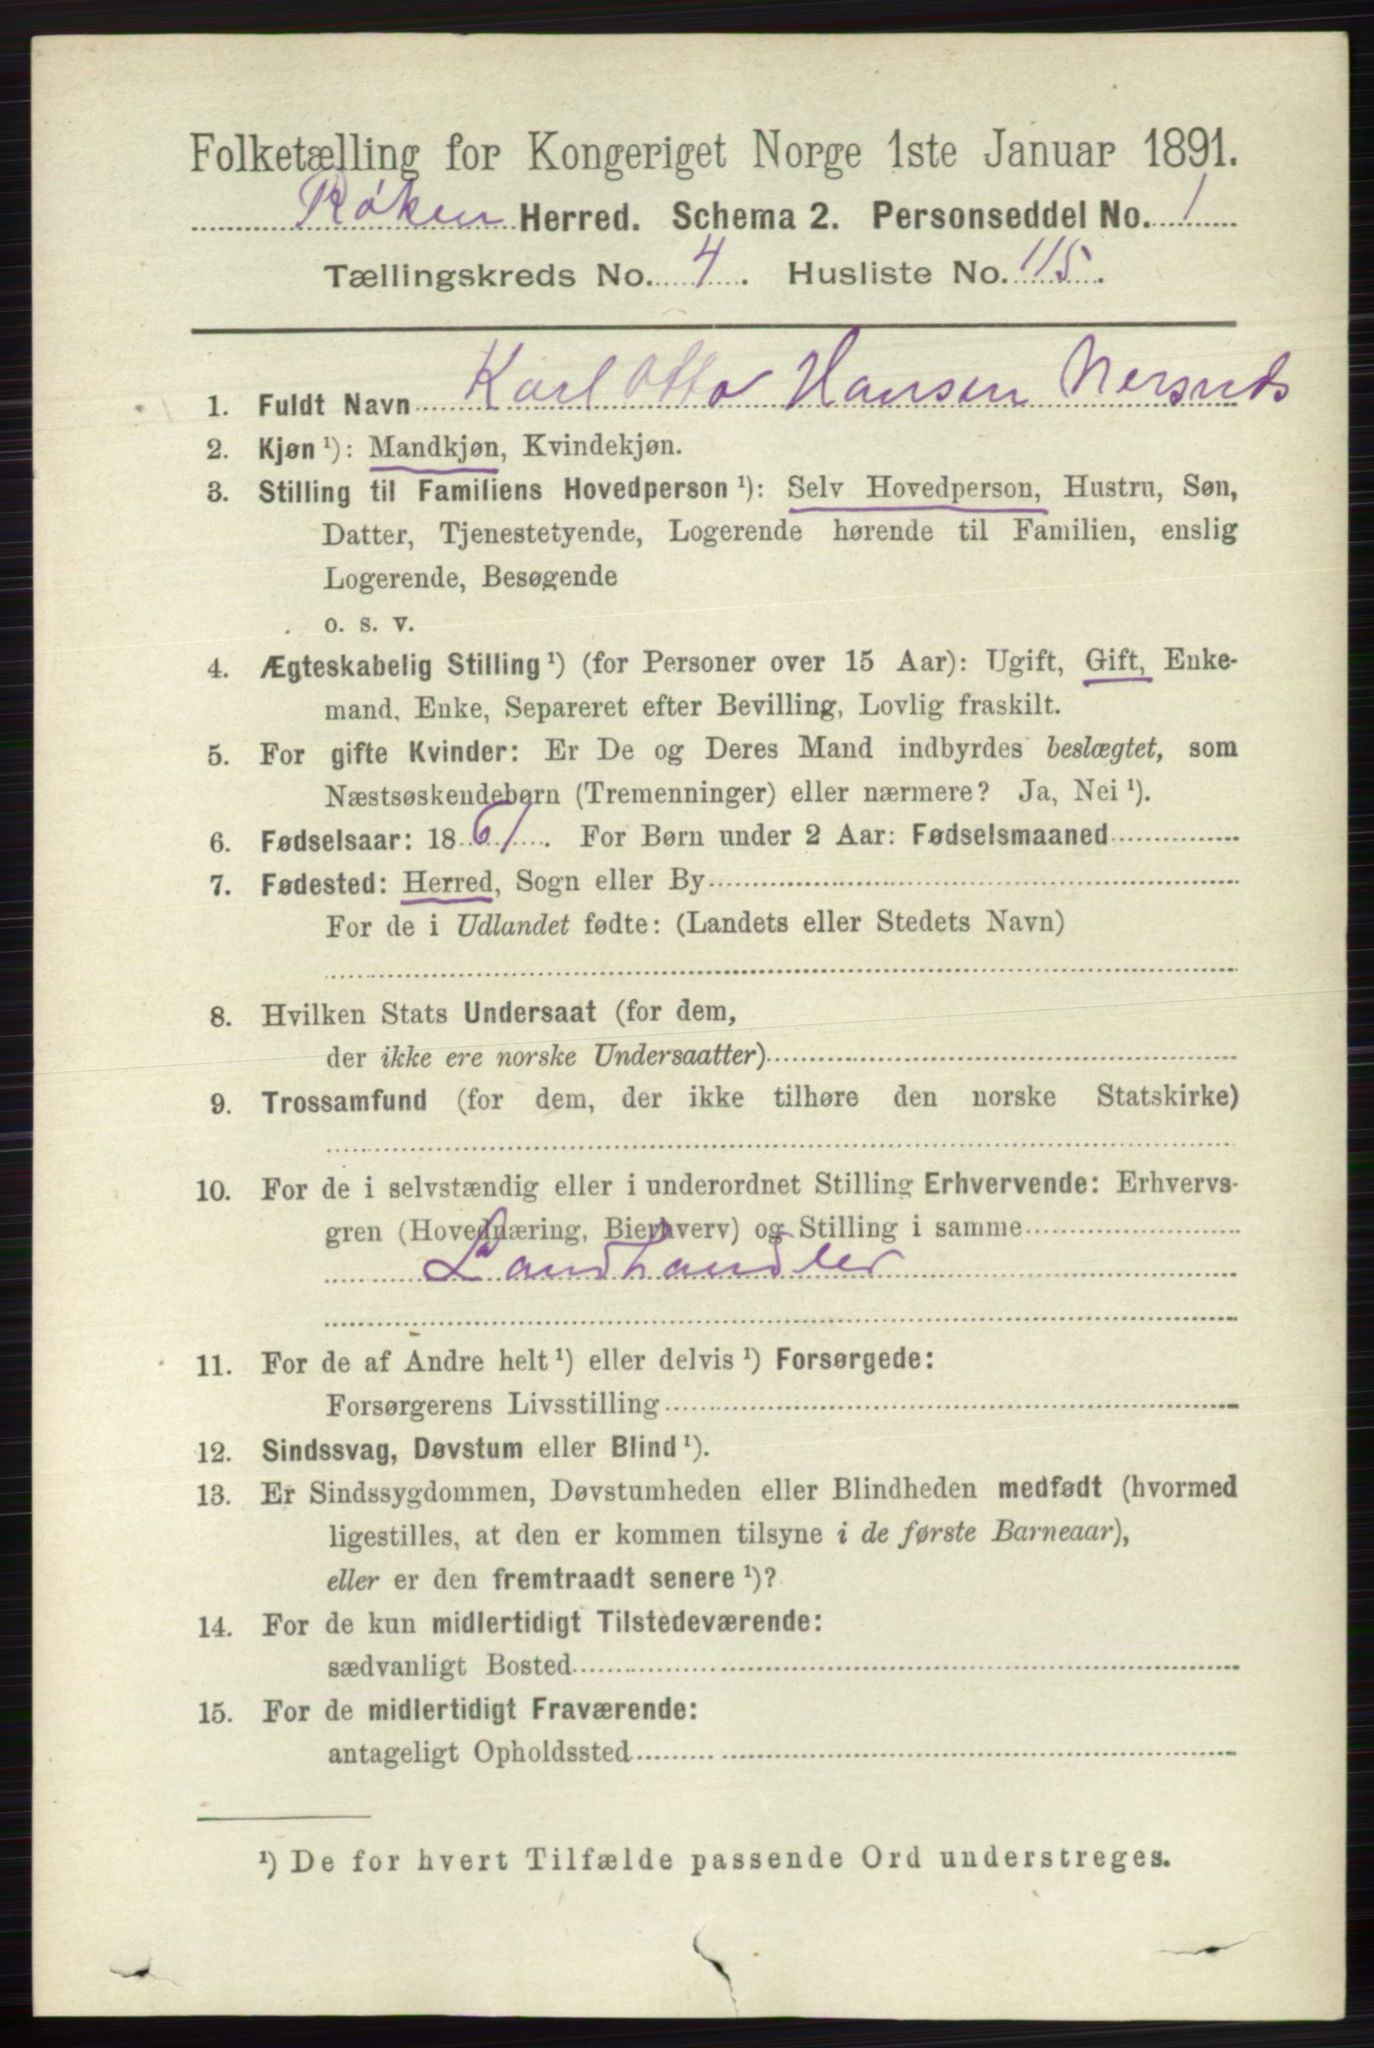 Folketælling for Kongeriget Norge 1ste Januar 1891.
Røken Herred. Schema 2. Personseddel No. 1
Tællingskreds No. 4. Husliste No. 115.
1. Fuldt Navn Karl Otto Hansen
2. Kjøn¹): Mandkjøn, Kvindekjøn.
3. Stilling til Familiens Hovedperson¹): Selv Hovedperson, Hustru, Søn,
Datter, Tjenestetyende, Logerende hørende til Familien, enslig
Logerende, Besøgende
o. s. v.
4. Ægteskabelig Stilling¹) (for Personer over 15 Aar): Ugift, Gift, Enke-
mand, Enke, Separeret efter Bevilling, Lovlig fraskilt.
5. For gifte Kvinder: Er De og Deres Mand indbyrdes beslægtet, som
Næstsøskendebørn (Tremenninger) eller nærmere? Ja, Nei¹).
6. Fødselsaar: 1861. For Børn under 2 Aar: Fødselsmaaned
7. Fødested: Herred, Sogn eller By
For de i Udlandet fødte: (Landets eller Stedets Navn)
8. Hvilken Stats Undersaat (for dem,
der ikke ere norske Undersaatter)
9. Trossamfund (for dem, der ikke tilhøre den norske Statskirke)
10. For de i selvstændig eller i underordnet Stilling Erhvervende: Erhvervs-
gren (Hovednæring, Bierhverv) og Stilling i samme
Landhandler
11. For de af Andre helt¹) eller delvis¹) Forsørgede:
Forsørgerens Livsstilling
12. Sindssvag, Døvstum eller Blind¹).
13. Er Sindssygdommen, Døvstumheden eller Blindheden medfødt (hvormed
ligestilles, at den er kommen tilsyne i de første Barneaar),
eller er den fremtraadt senere¹)?
14. For de kun midlertidigt Tilstedeværende:
sædvanligt Bosted
15. For de midlertidigt Fraværende:
antageligt Opholdssted
¹) De for hvert Tilfælde passende Ord understreges.